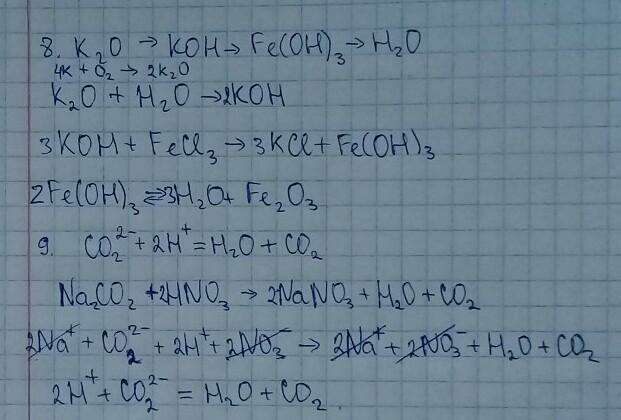 8. K₂O → KOH → Fe(OH)₃ → H₂O
4K + O₂ → 2K₂O
K₂O + H₂O → 2KOH
3KOH + FeCl₃ → 3KCl + Fe(OH)₃
2Fe(OH)₃ ⇌ 3H₂O + Fe₂O₃
9. CO₂²⁻ + 2H⁺ = H₂O + CO₂
Na₂CO₂ + 2HNO₃ → 2NaNO₃ + H₂O + CO₂
2Na⁺ + CO₂²⁻ + 2H⁺ + 2NO₃⁻ → 2Na⁺ + 2NO₃⁻ + H₂O + CO₂
2H⁺ + CO₂²⁻ = H₂O + CO₂.